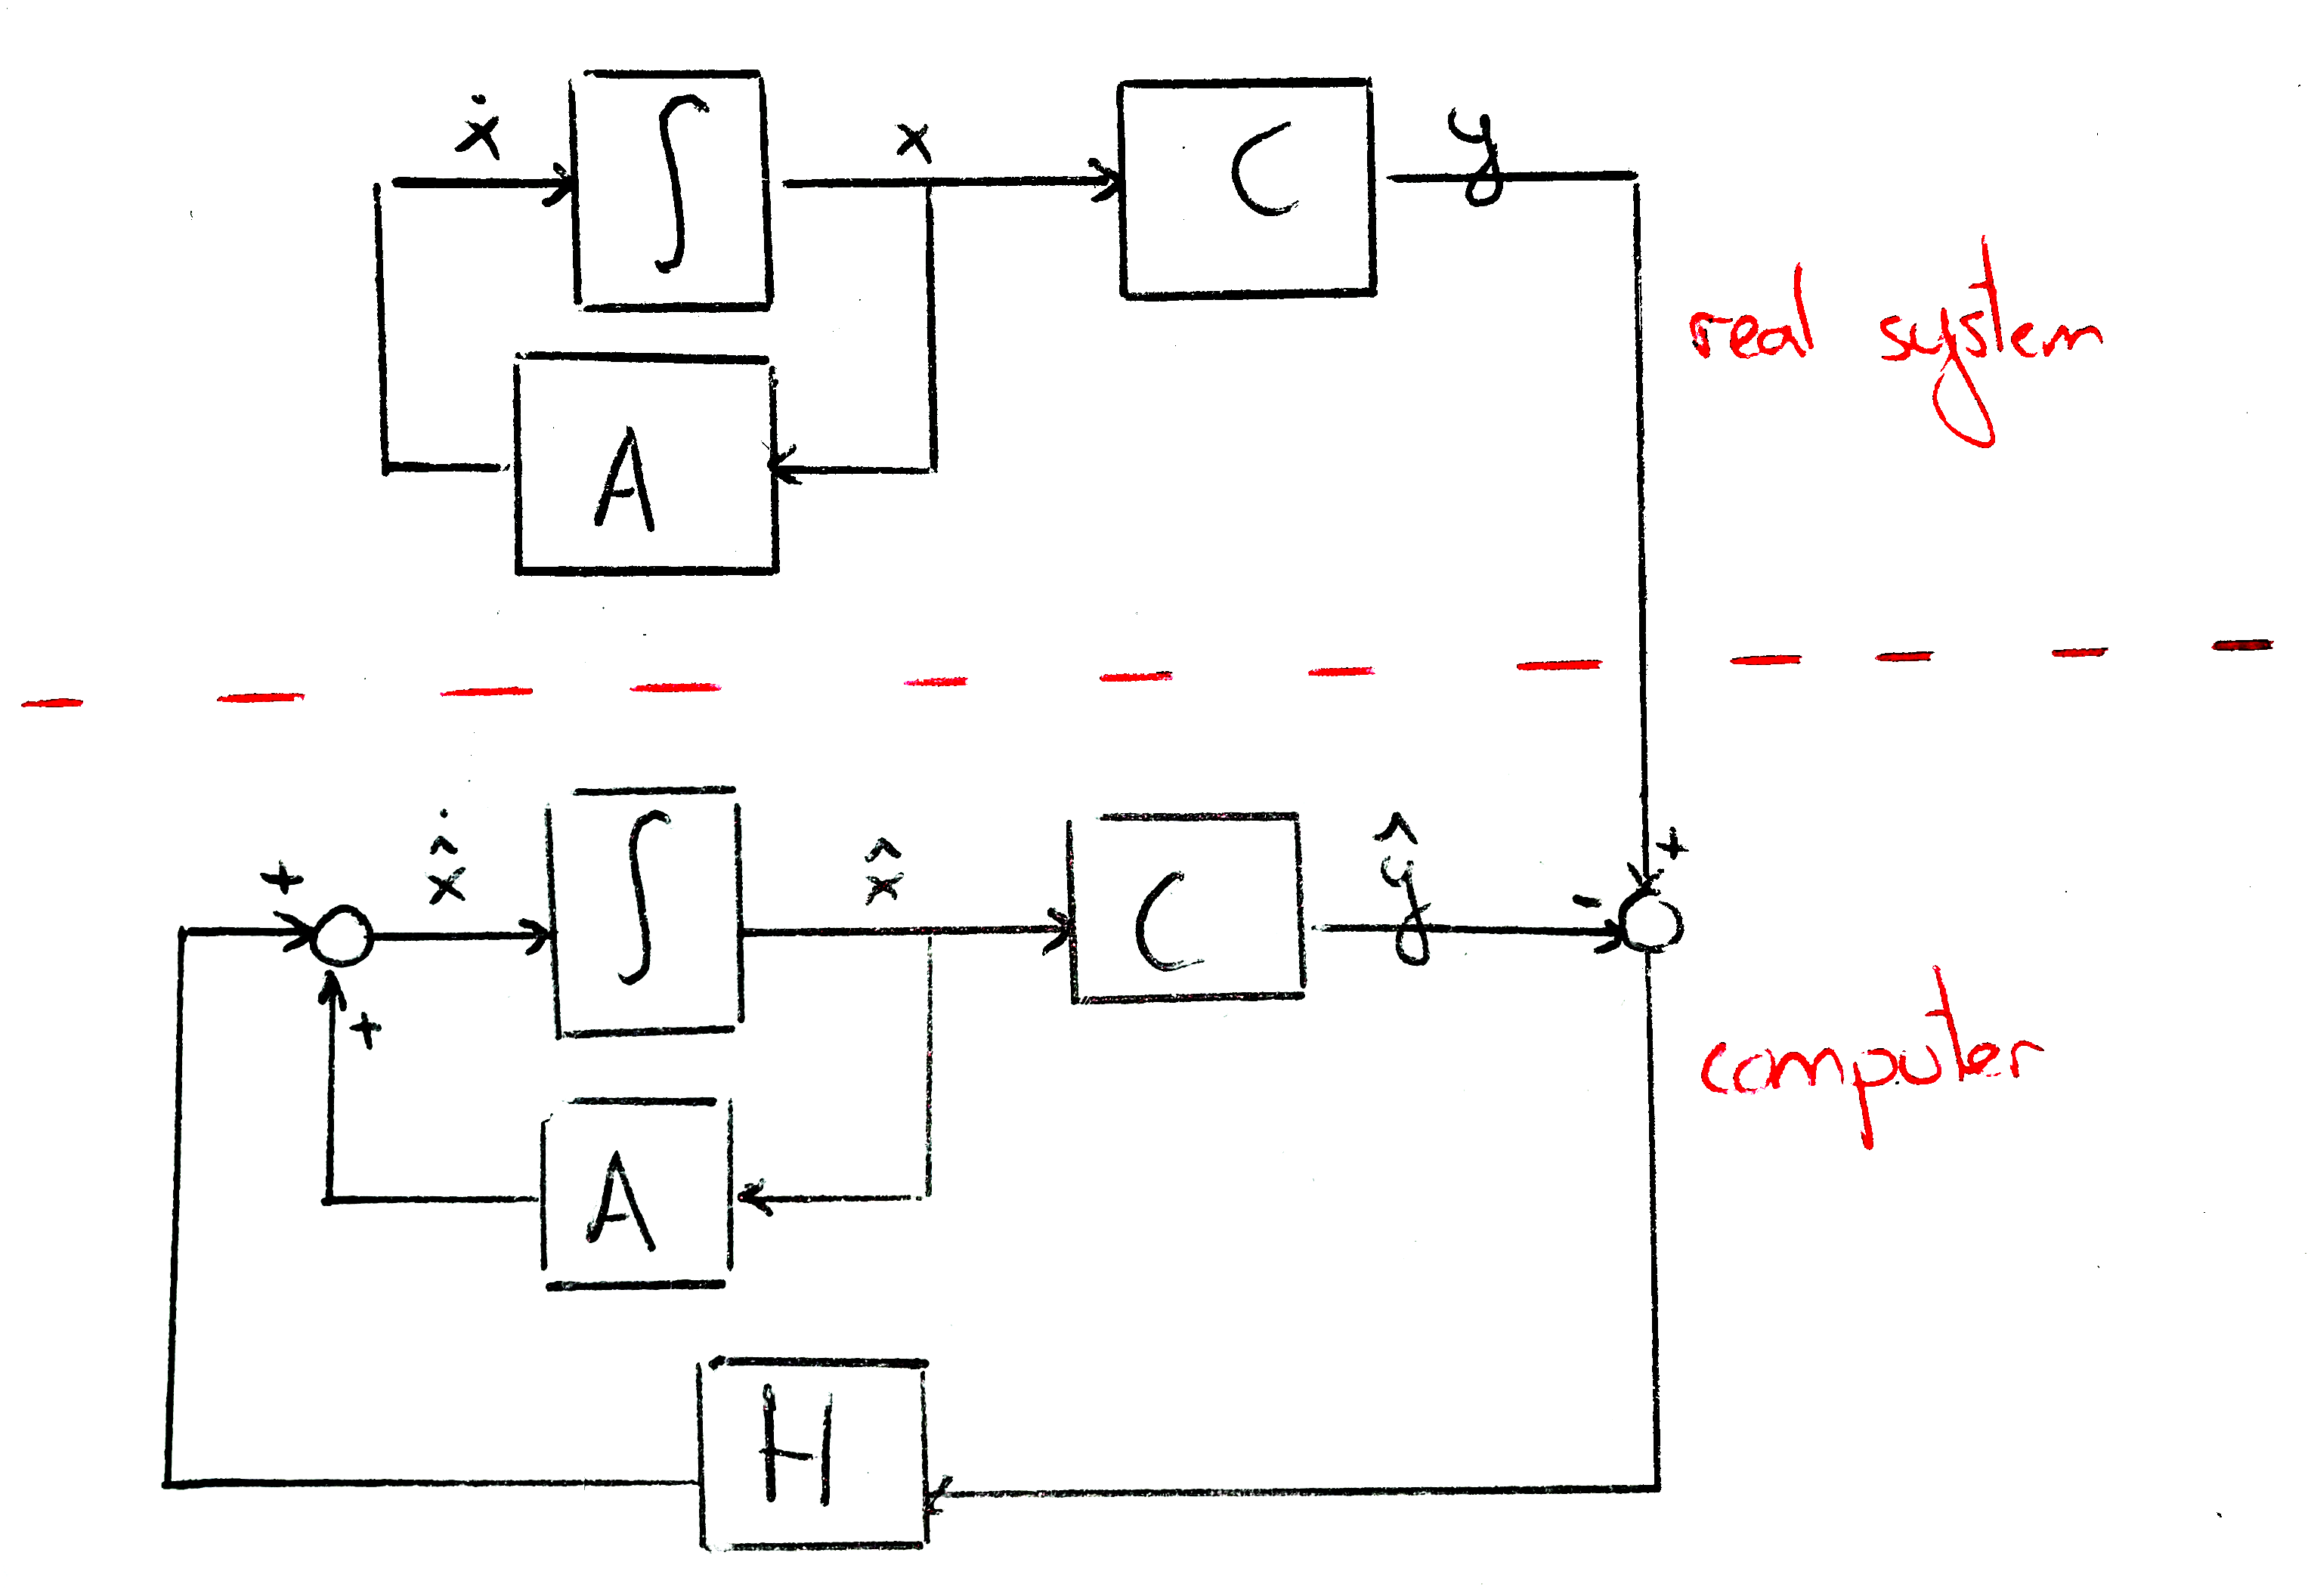 ẋ ∫ x C y
A
real system
+ x̂̇ ∫ x̂ C ŷ - +
+
computer
A
H